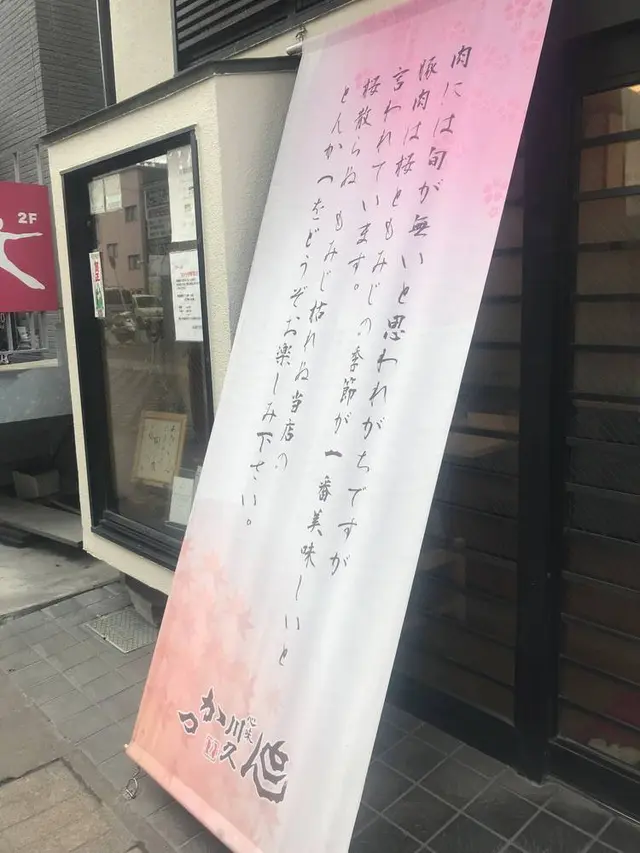 肉には旬が無いと思われがちですが
豚肉は桜ともみじの季節が一番美味しいと
言われています。
桜散らぬ もみじ枯れぬ当店の
とんかつをどうぞお楽しみ下さい。
2F
川久